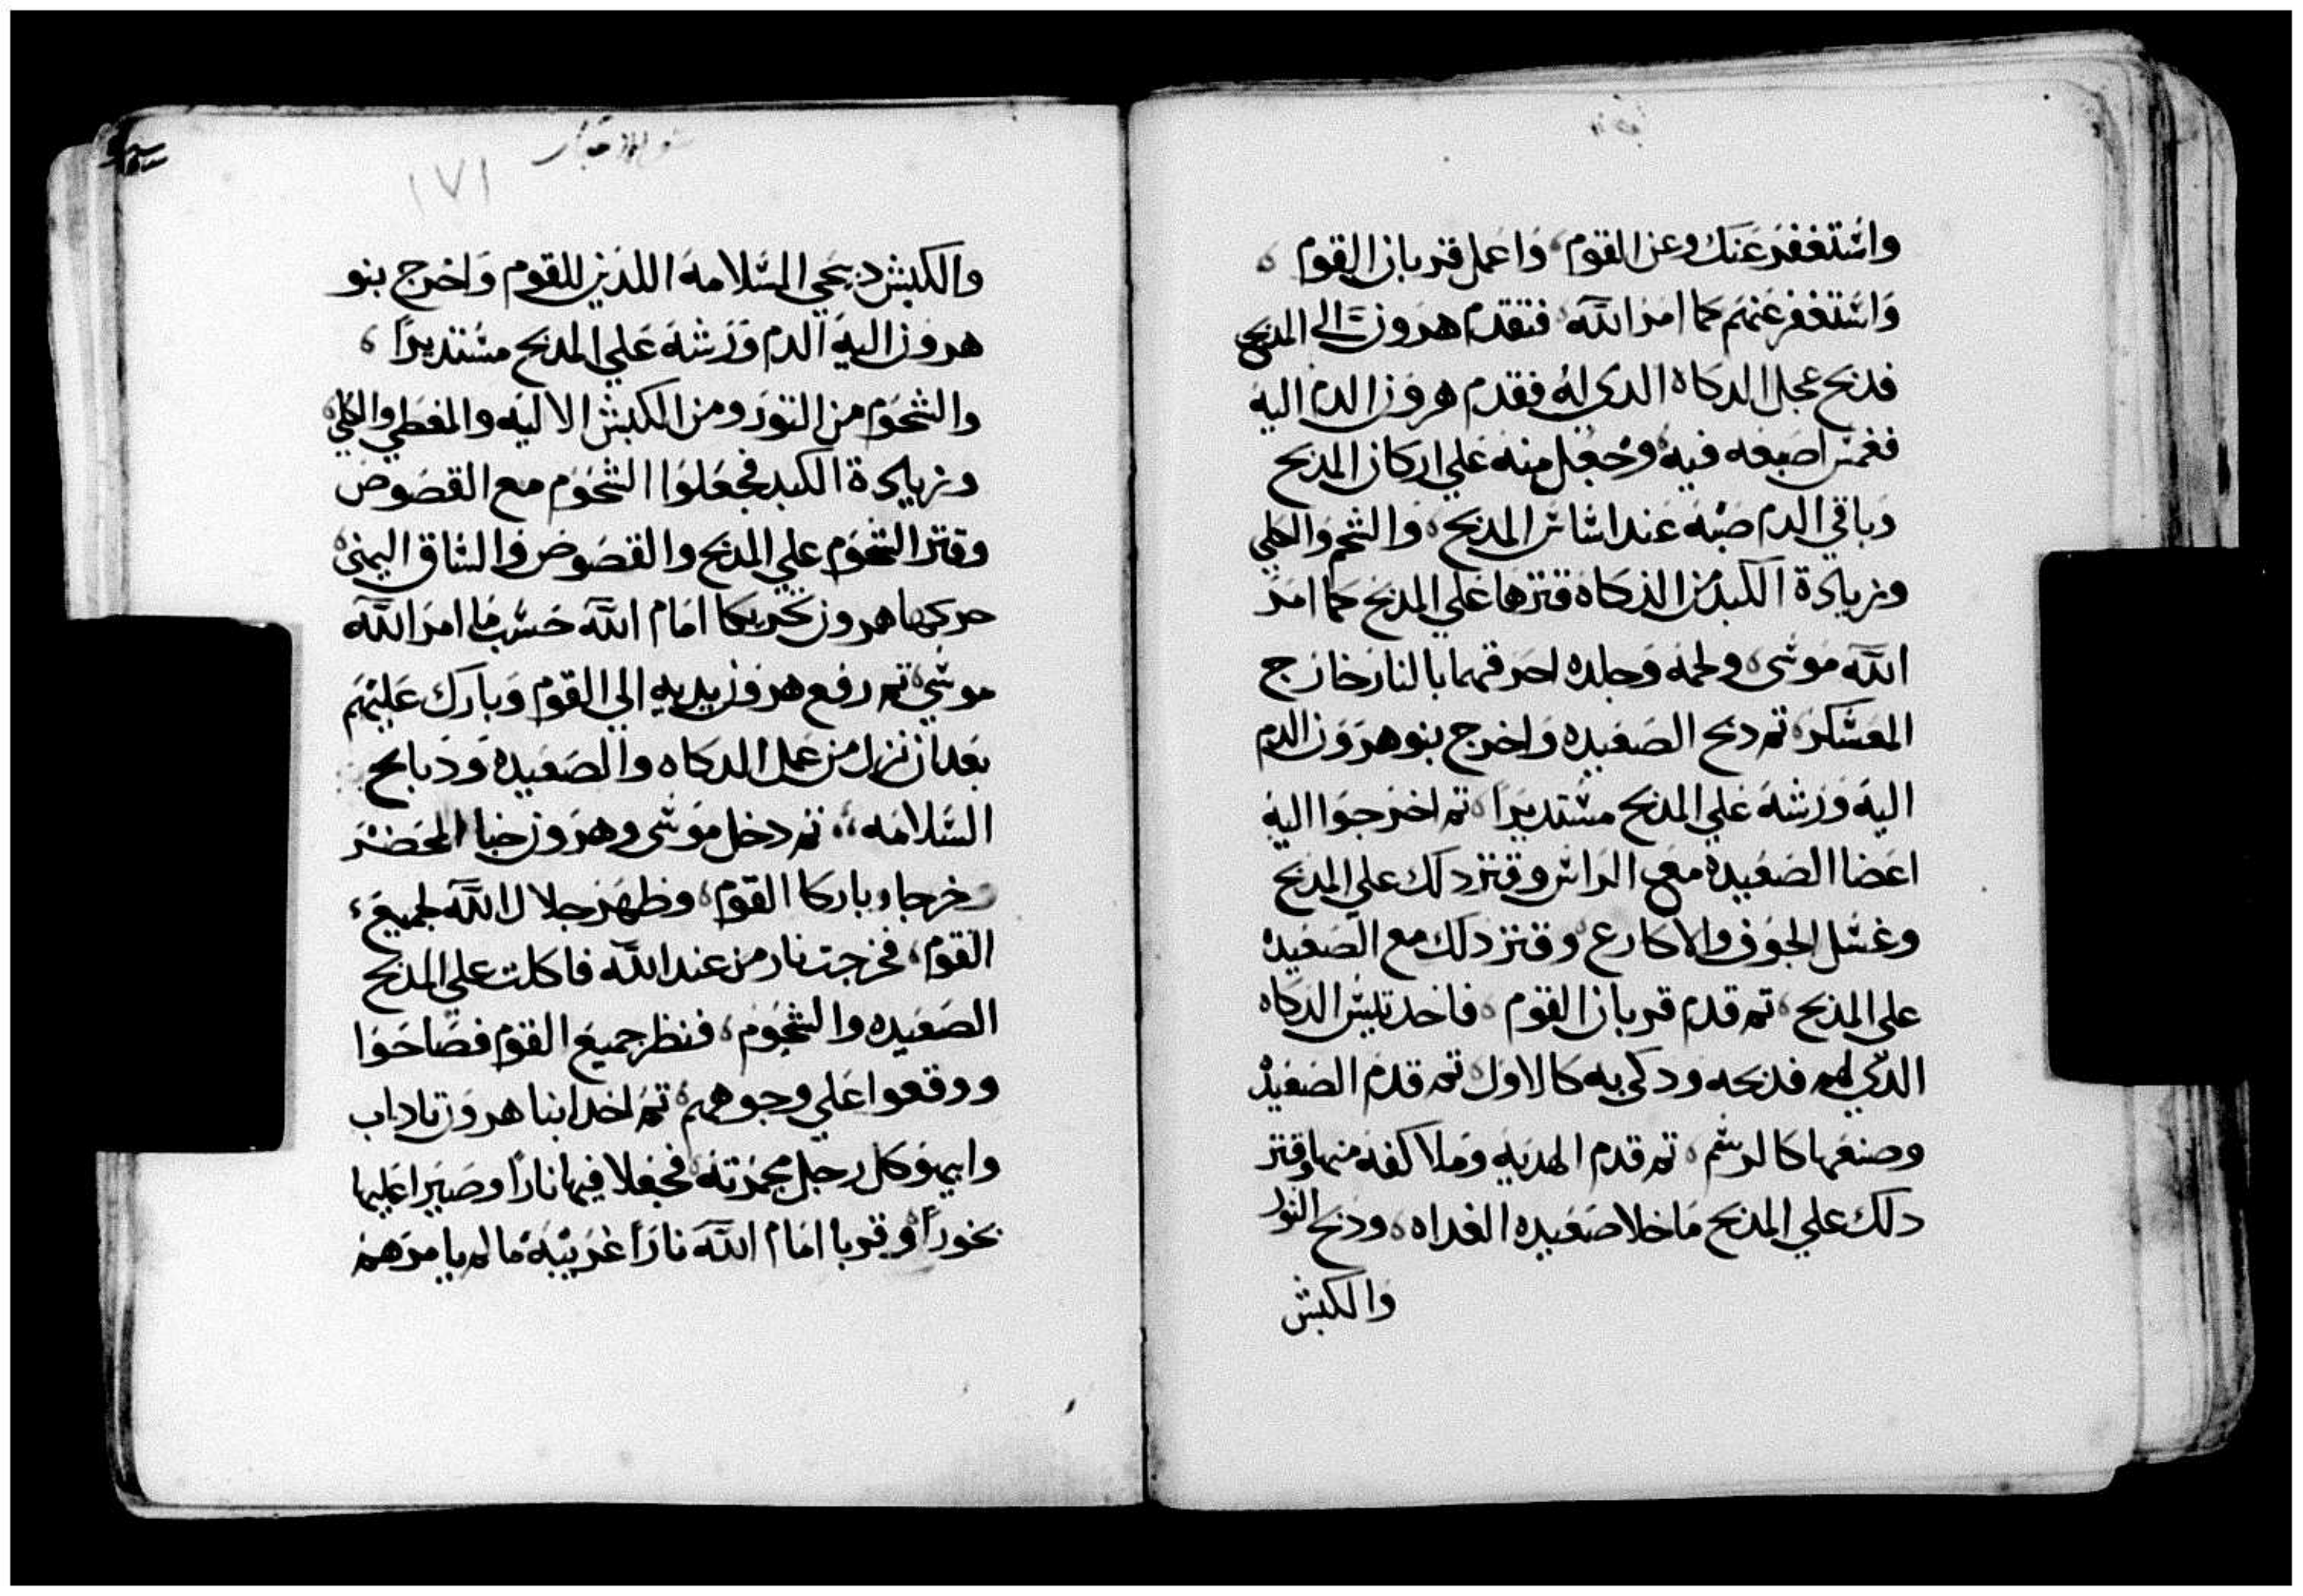 واستغفر عنك وعن القوم، واعمل قربان القوم،
واستغفر عنهم كما امر الله، فتقدم هرون الي المدبح
فدبح عجل الدكاه الدي له فقدم هرون الدم اليه
فغمس اصبعه فيه وجعل منه علي اركان المدبح
وباقي الدم صبه عند اساس المدبح، والشحم والكلي
وزيادة الكبد من الدكاه قترها علي المدبح كما امر
الله موسى، ولحمه وجلده احرقهما بالنار خارج
المعسكر، تم دبح الصعيده واخرج بنو هرون الدم
اليه ورشه علي المدبح مستديرا، تم اخرجوا اليه
اعضا الصعيده مع الراس وقتر دلك علي المدبح
وغسل الجوف والاكارع، وقتر دلك مع الصعيده
علي المدبح، تم قدم قربان القوم، فاخد تيس الدكاه
الدي لهم فدبحه ودكي به كالاول، تم قدم الصعيده
وصنعها كالرسم، تم قدم الهديه وملا كفه منها وقتر
دلك علي المدبح ماخلا صعيده الغداه، ودبح التور
والكبش
١٧١
والكبش دبيحي السلامه اللدين للقوم واخرج بنو
هرون اليه الدم ورشه علي المدبح مستديرا،
والشحوم من التور ومن الكبش الاليه والمغطي والكلي
وزيادة الكبد فجعلوا الشحوم مع القصوص
وقتر الشحوم علي المدبح والقصوص والساق اليمنى
حركها هرون تحريكا امام الله حسب ما امر الله
موسي، تم رفع هرون يديه الي القوم وبارك عليهم
بعد ان نزل من عمل الدكاه والصعيده ودبايح
السلامه،، تم دخل موسى وهرون خبا المحضر
وخرجا وباركا القوم، وظهر جلال الله لجميع،
القوم، فخرجت نار من عند الله فاكلت علي المدبح
الصعيده والشحوم، فنظر جميع القوم فصاحوا
ووقعوا علي وجوههم، تم اخد ابنا هرون ناداب
وابيهو كل رجل مجمرته، فجعلا فيها نارا وصيرا عليها
بخورا، وقربا امام الله نارا غريبة ما لم يامرهم